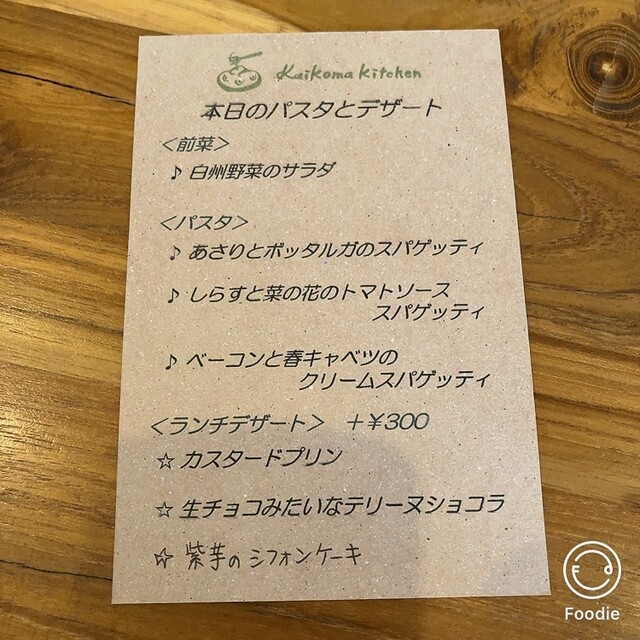 Kaikoma kitchen
本日のパスタとデザート
＜前菜＞
♪ 白州野菜のサラダ
＜パスタ＞
♪ あさりとボッタルガのスパゲッティ
♪ しらすと菜の花のトマトソース
スパゲッティ
♪ ベーコンと春キャベツの
クリームスパゲッティ
＜ランチデザート＞ ＋￥300
☆ カスタードプリン
☆ 生チョコみたいなテリーヌショコラ
☆ 紫芋のシフォンケーキ
Foodie